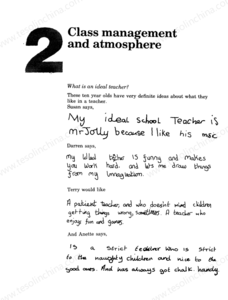 2
Class management
and atmosphere
What is an ideal teacher?
These ten year olds have very definite ideas about what they
like in a teacher.
Susan says,
My ideal school Teacher is
mr Jolly because I like his
Darren says,
My is funny and makes
you work hard. and lets me draw things
from my Imagination.
Terry would like
A patient teacher, and who doesn't mind children
getting things wrong, sometimes. A teacher who
enjoys fun and games.
And Anette says,
Is a strict who is strict
to the naughty children and nice to the
good ones. And has always got chalk handy.